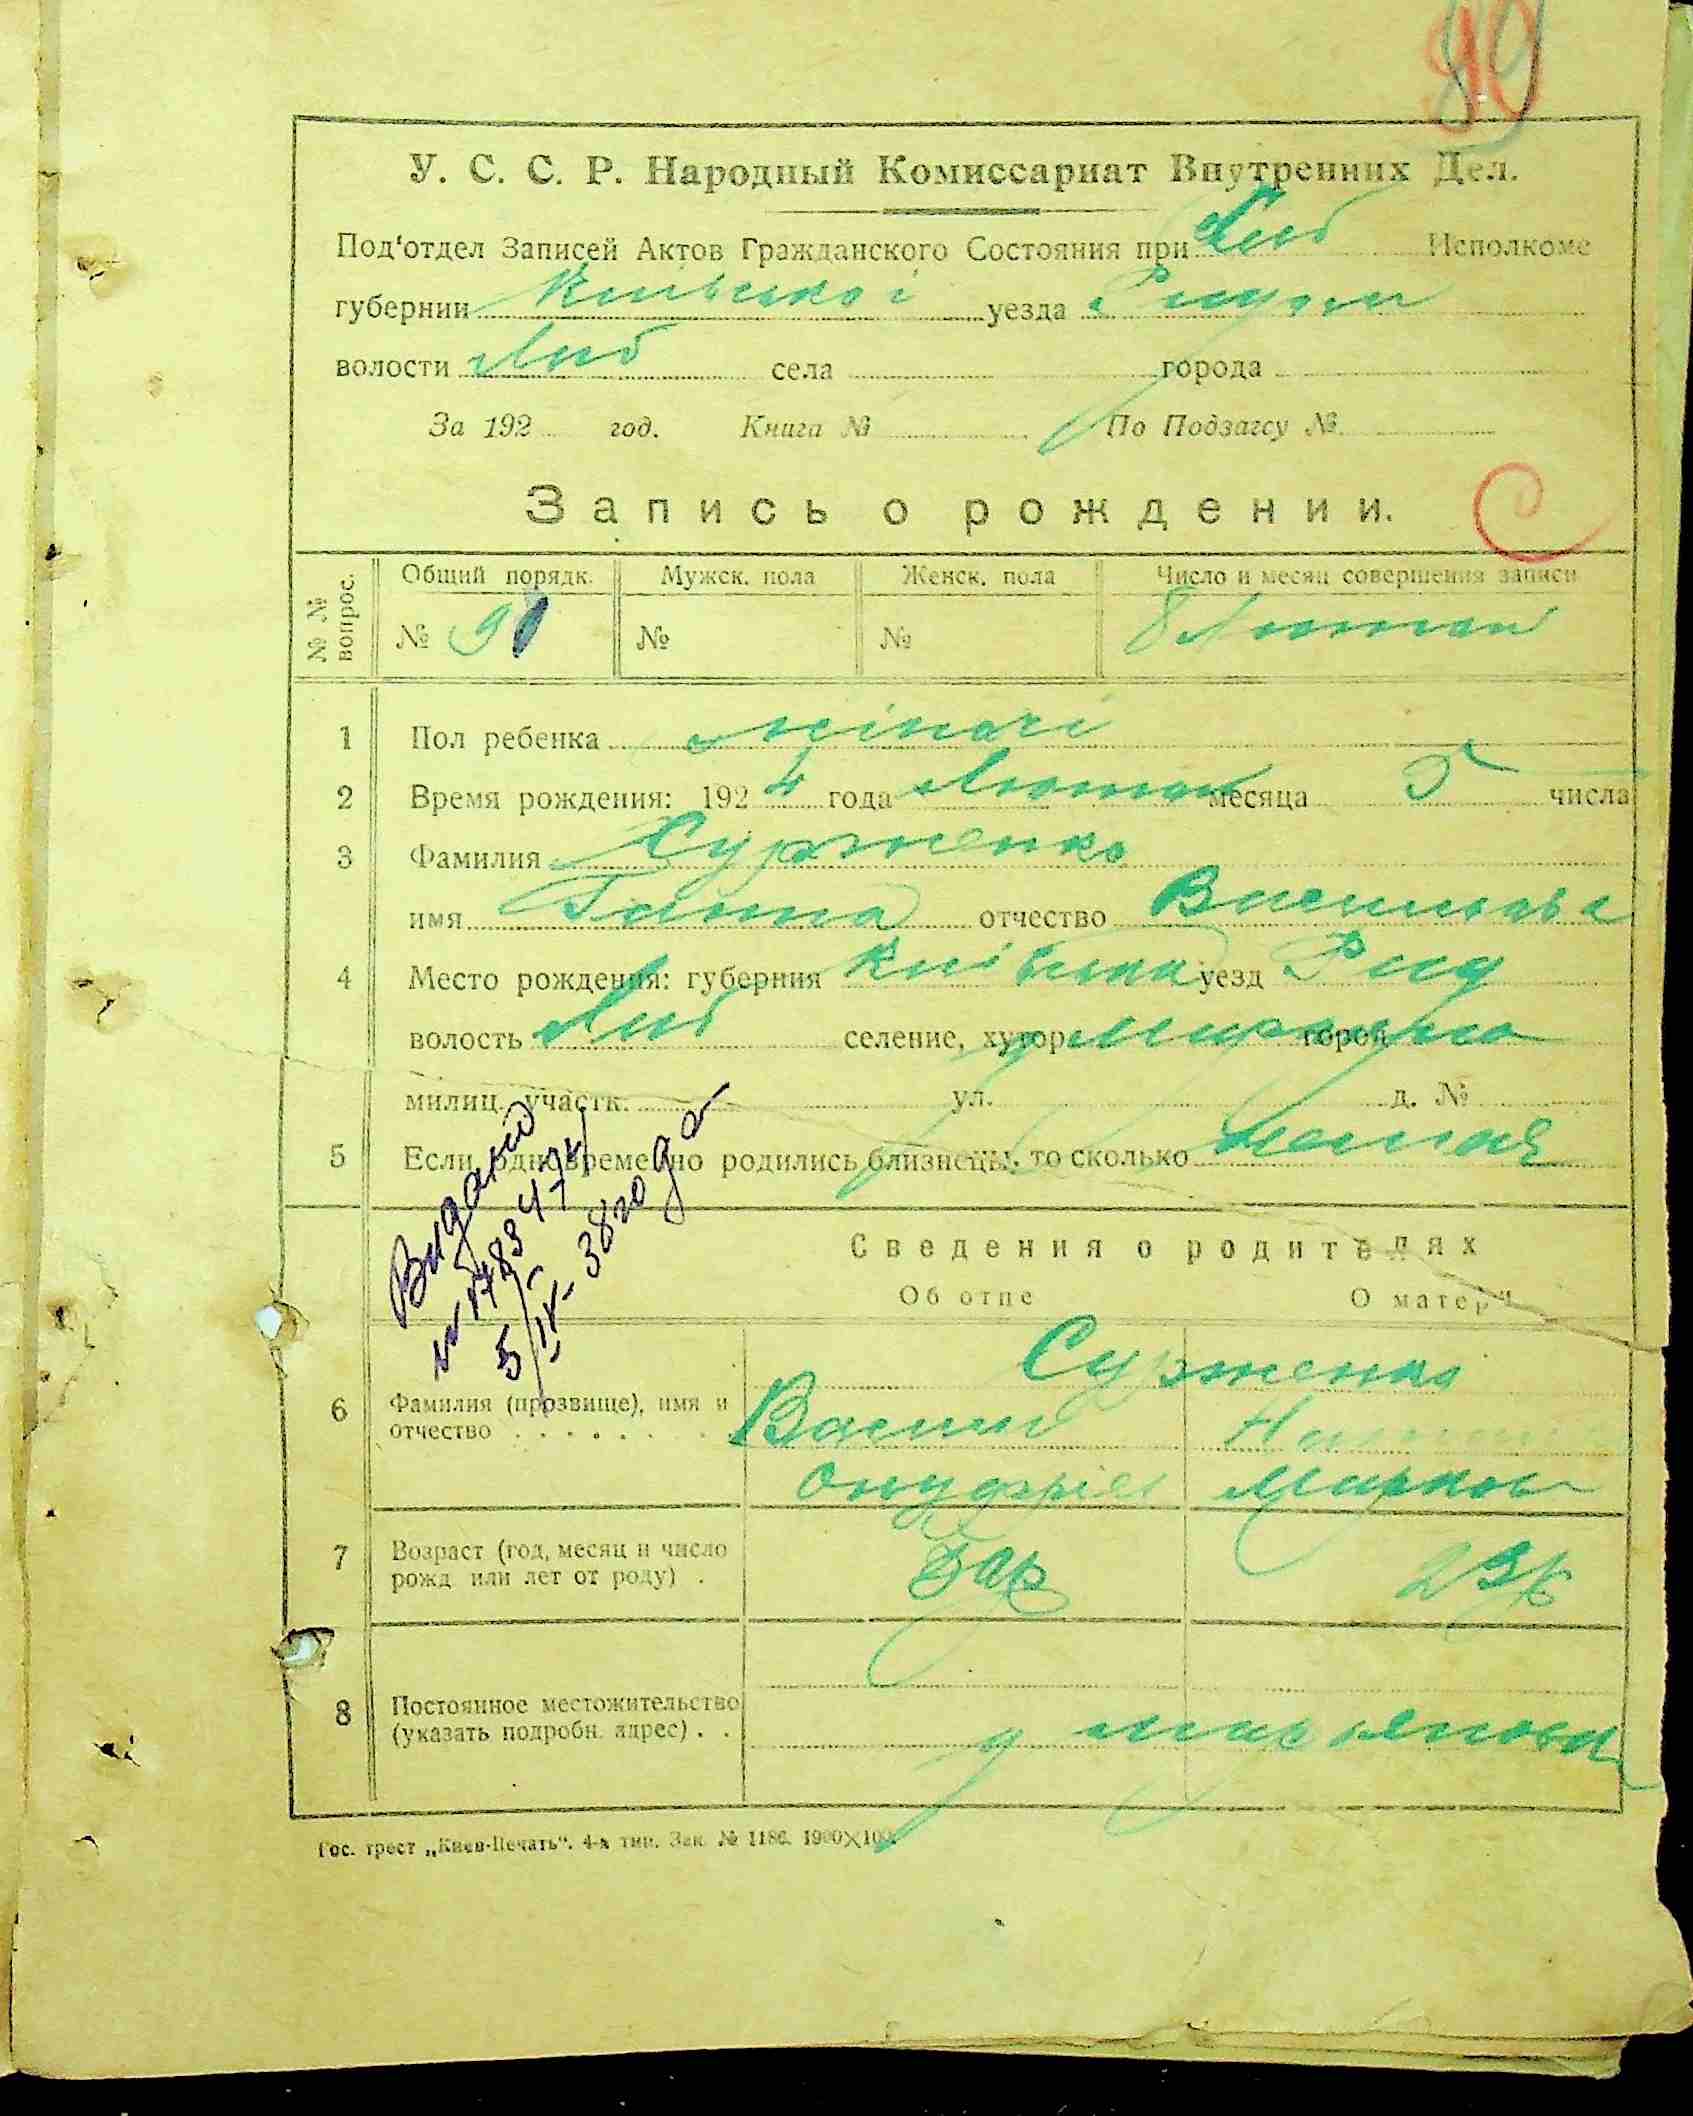 У. С. С. Р. Народный Комиссариат Внутренних Дел.
Под'отдел Записей Актов Гражданского Состояния при Либ Исполкоме
губернии Київської уезда
волости Либ села города
За 192 год. Книга № По Подзагсу №
Запись о рождении.
№№ вопрос. Общий порядк. Мужск. пола Женск. пола Число и месяц совершения записи
№ 91 № № 8 Лютий
1 Пол ребенка жіночі
2 Время рождения: 1924 года Лютий месяца 5 числа
3 Фамилия Сурженко
имя Ганна отчество
4 Место рождения: губерния Київська уезд
волость Либ селение, хутор город
милиц. участк. ул. д. №
5 Если одновременно родились близнецы, то сколько немає
Видано
5/IV-38 года
Сведения о родителях
Об отце О матери
Сурженко
6 Фамилия (прозвище), имя и отчество Василь
Онуфріев Марков
7 Возраст (год, месяц и число рожд или лет от роду) 23
8 Постоянное местожительство (указать подробн. адрес)
Гос. трест „Киев-Печать". 4-я тип. Зак. № 1186. 1900×100.